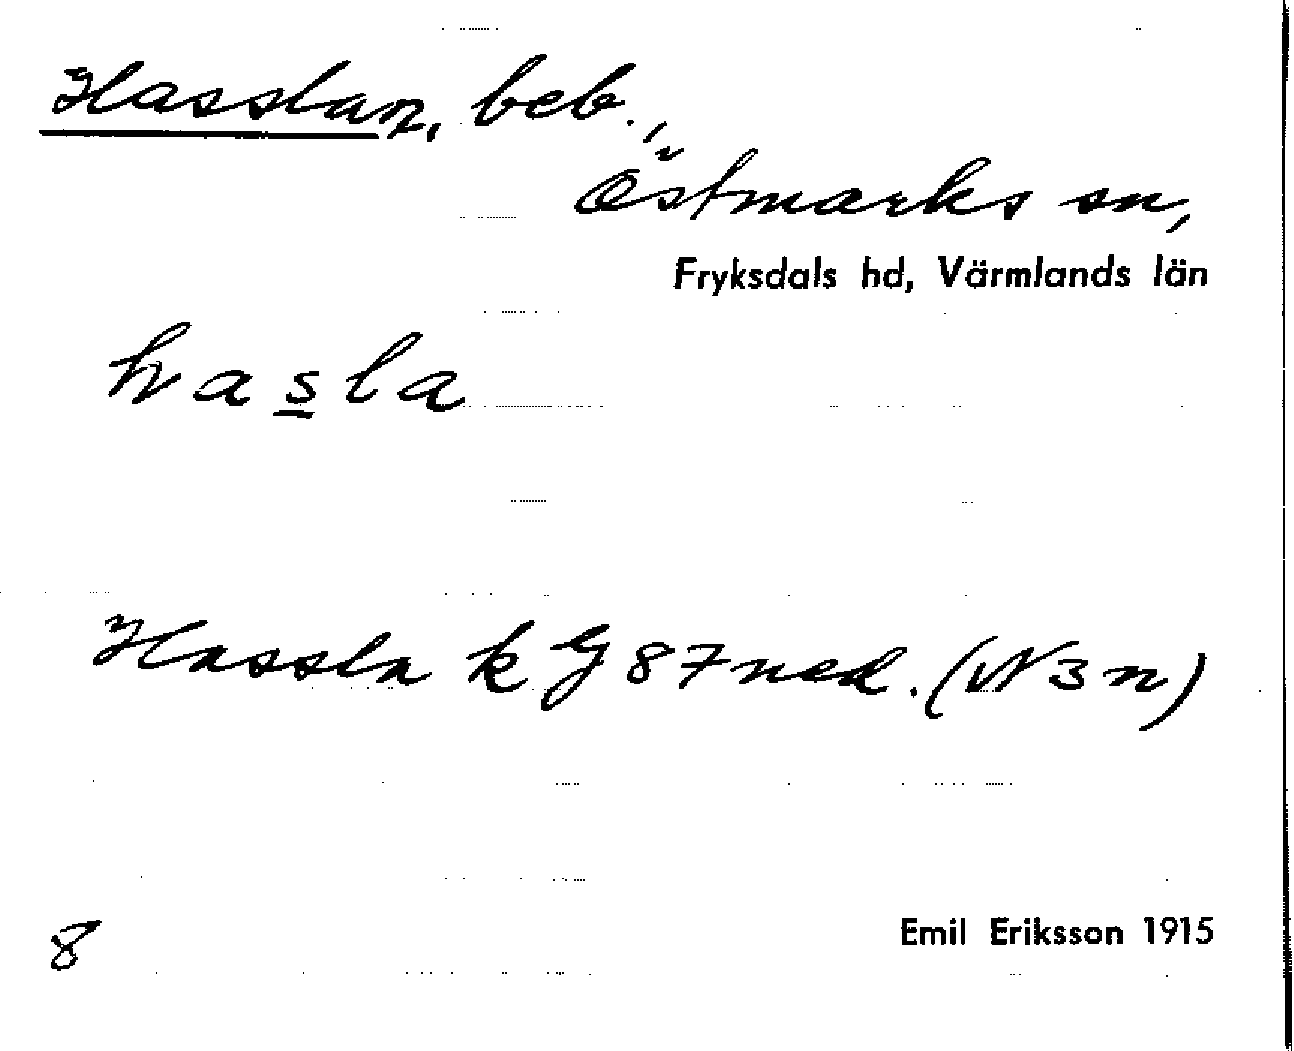 Hasslan, beb.,
Östmarks sn,
Fryksdals hd, Värmlands län
hasla
Hassla k G 87 ned. (N 3 n)
8
Emil Eriksson 1915